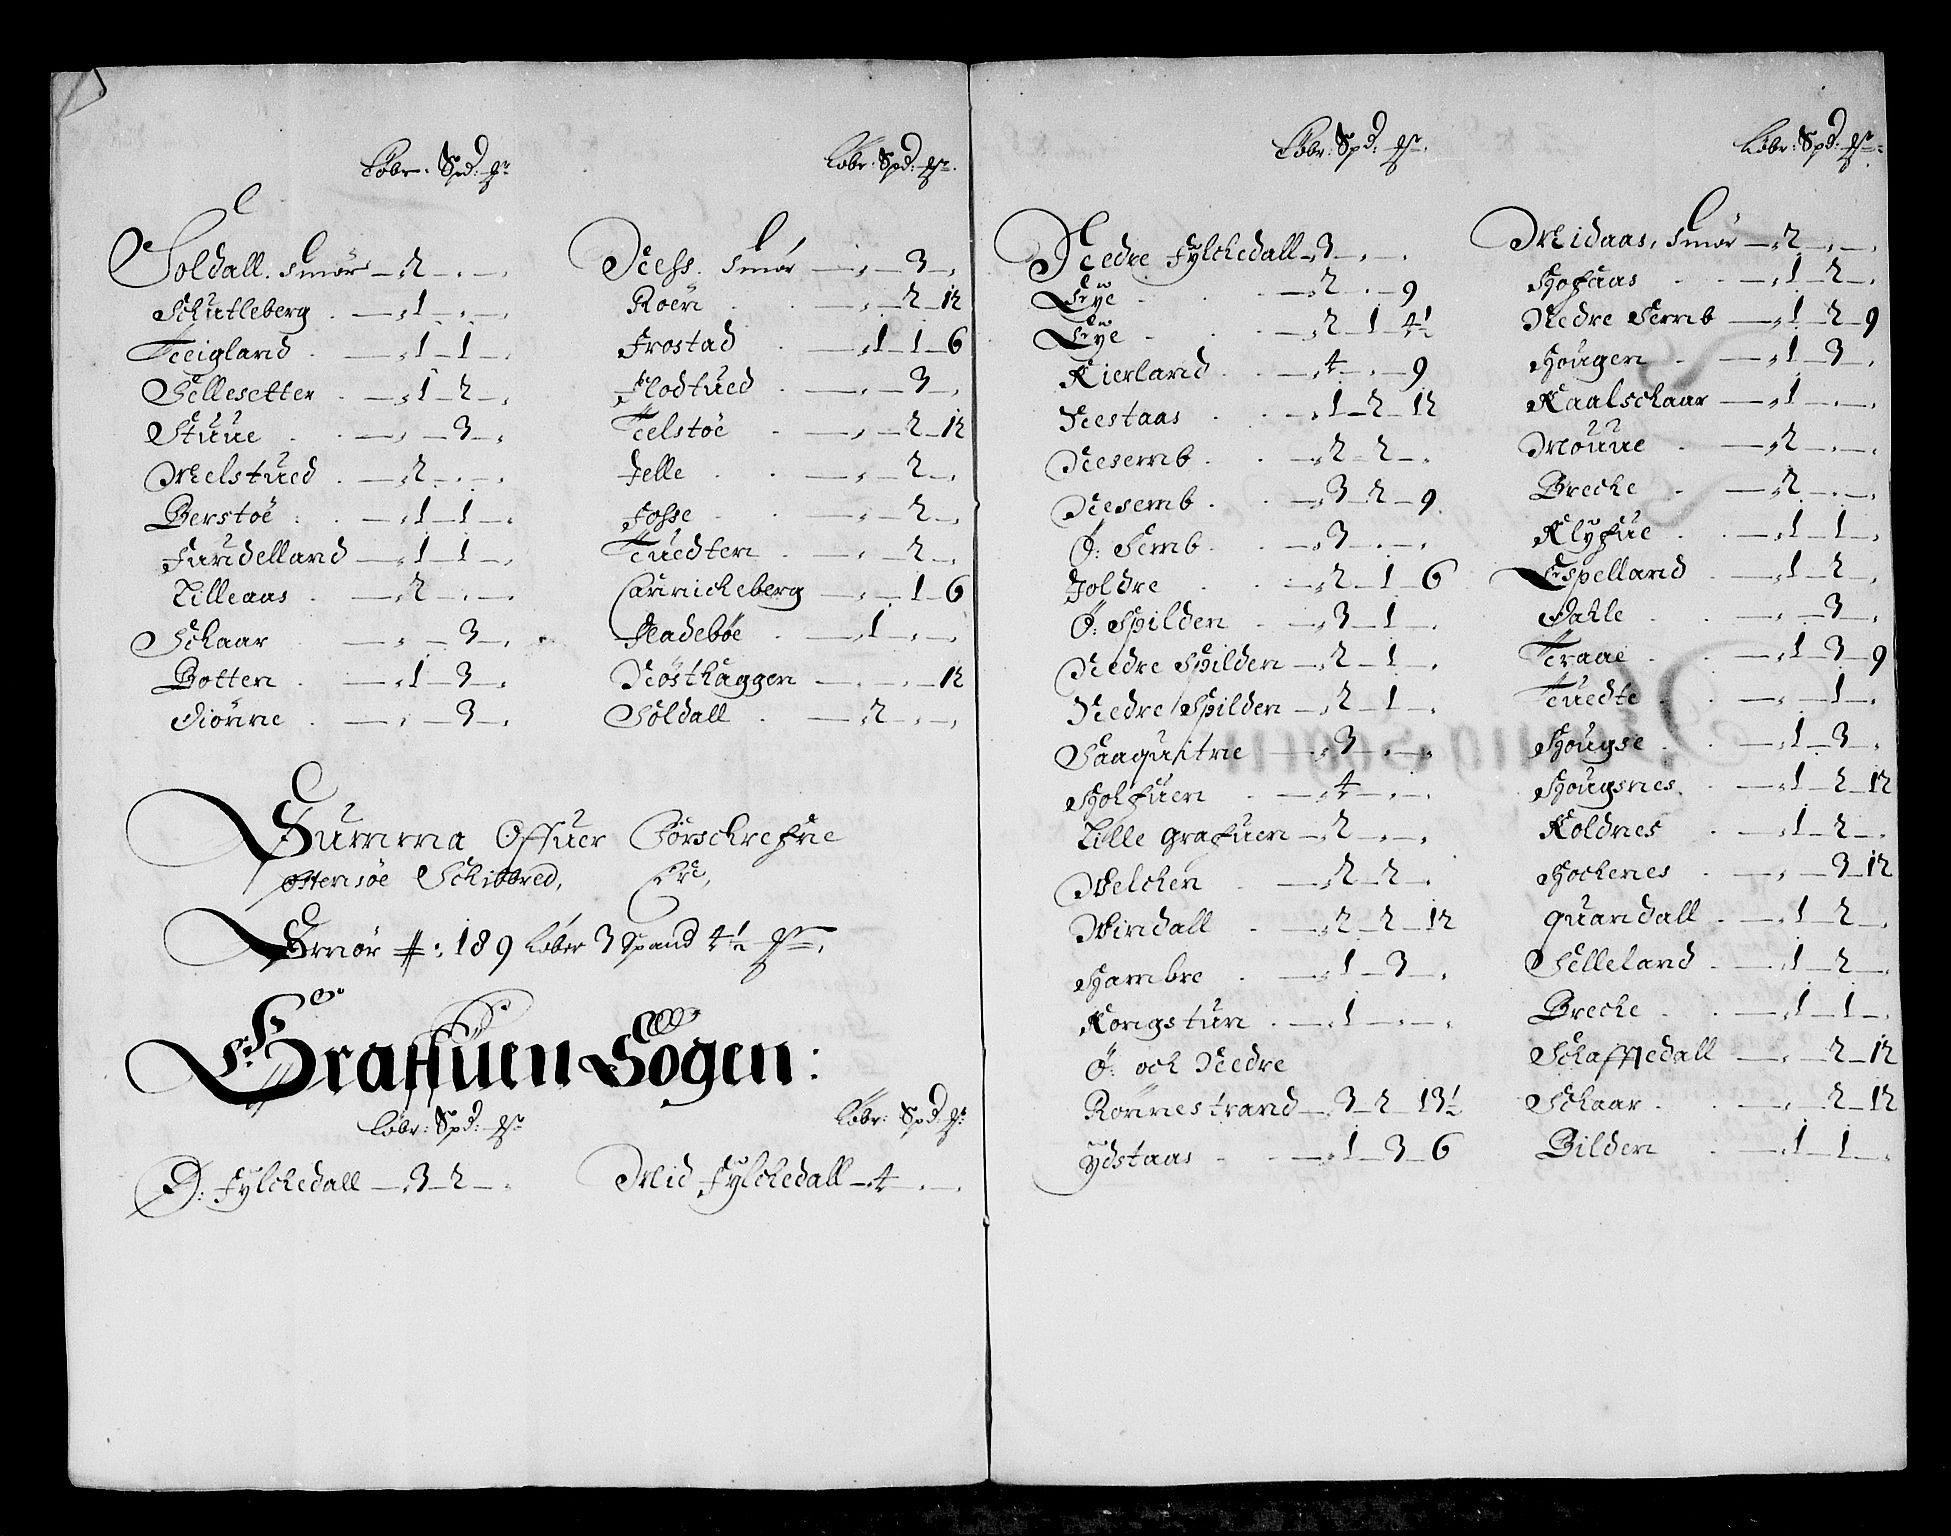 Løbr: Spd: mr:
Soldall. Smør — 2 . —
Schutleberg . — 1 . —
Teigland . — 1 — 1 — .
Sellesetter . — 1 — 2 — .
Stuue . — . — 3 — .
Melstued . — 2 . — .
Berstøe : . — 1 — 1 — .
Sandelland — 1 — 1 — .
Lilleaas . — 2 . — .
Schaar — . — 3 — .
Botten . — 1 — 3 — .
Giönne . — . — 3 — .
Løbr: Spd: mr:
Ness. Smør — . — 3 — .
Roen . . — . — 2 — 12
Frostad . — 1 — 1 — 6
Flodtued . — . — 3 — .
Telstöe . — . — 2 — 12
Jelle . . — . — 2 — .
Fosse . . — . — 2 — .
Tuedten . — . — 2 — .
Cannickeberg — . — 1 — 6
Fladebøe . — 1 . — .
Nösthaggen — . — . — 12
Söldall . — 2 — . — .
Summa Offuer Förschrefne
Ostensøe Schibbred, Ere,
Smør #: 189 Løber 3 Spand 4½ mr:
Graffuen Sogen:
Løbr: Spd: mr:
Ø: Fylchedall — 3 — 2 — .
Løbr: Spd: mr:
Mid Fylchedall — 4 . — .
Løbr: Spd: mr:
Nedre Fylchedall — 3 — . — .
Lye . . — 2 . — 9
Lye . . — 2 — 1 — 4½
Kierland . — 4 . — 9
Nestaas . — 1 — 2 — 12
Nesemb . — 2 — 2 — .
Nesemb . — 3 — 2 — 9
Ø: Semb . — 3 . — .
Joldre . — 2 — 1 — 6
Ø: Spilden . — 3 — 1 — .
Nedre Spilden — 2 — 1 — .
Nedre Spilden — 2 — 1 — .
Saaquitne — 3 . — .
Holfuen . — 4 . — .
Lille Grafuen — 2 . — .
Melchen . — 2 — 2 — .
Windall . — 2 — 2 — 12
Hambre . — 1 — 3 — .
Kongstun . — 1 — . — .
Ø: och Nedre
Rönnestrand — 3 — 2 — 13½
Ydstaas . — 1 — 3 — 6
Løbr: Spd: mr:
Midaas, Smør — 2 . — .
Hofaas . . — 1 — 2 — .
Nedre Semb — 1 — 2 — 9
Hougen . — 1 — 3 — .
Kaalschaar — 1 . — .
Mouue . — 2 . — .
Brecke . — 2 . — .
Klyfue . . — 1 — 1 — .
Espelland . — 1 — 2 — .
Dahle . . — . — 3 — .
Traae . . — 1 — 3 — 9
Tuedte . . — . — 1 — .
Hougse . . — 1 — 3 — .
Hougsnes . — 1 — 2 — 12
Koldnes . — 1 — 2 — .
Hochenes . — . — 3 — 12
Quandall . — 1 — 2 — .
Selleland . — 1 — 2 — .
Brecke . . — 1 — 1 — .
Schaffledall — . — 2 — 12
Schaar . . — . — 2 — 12
Bilden . — 1 — 1 — .